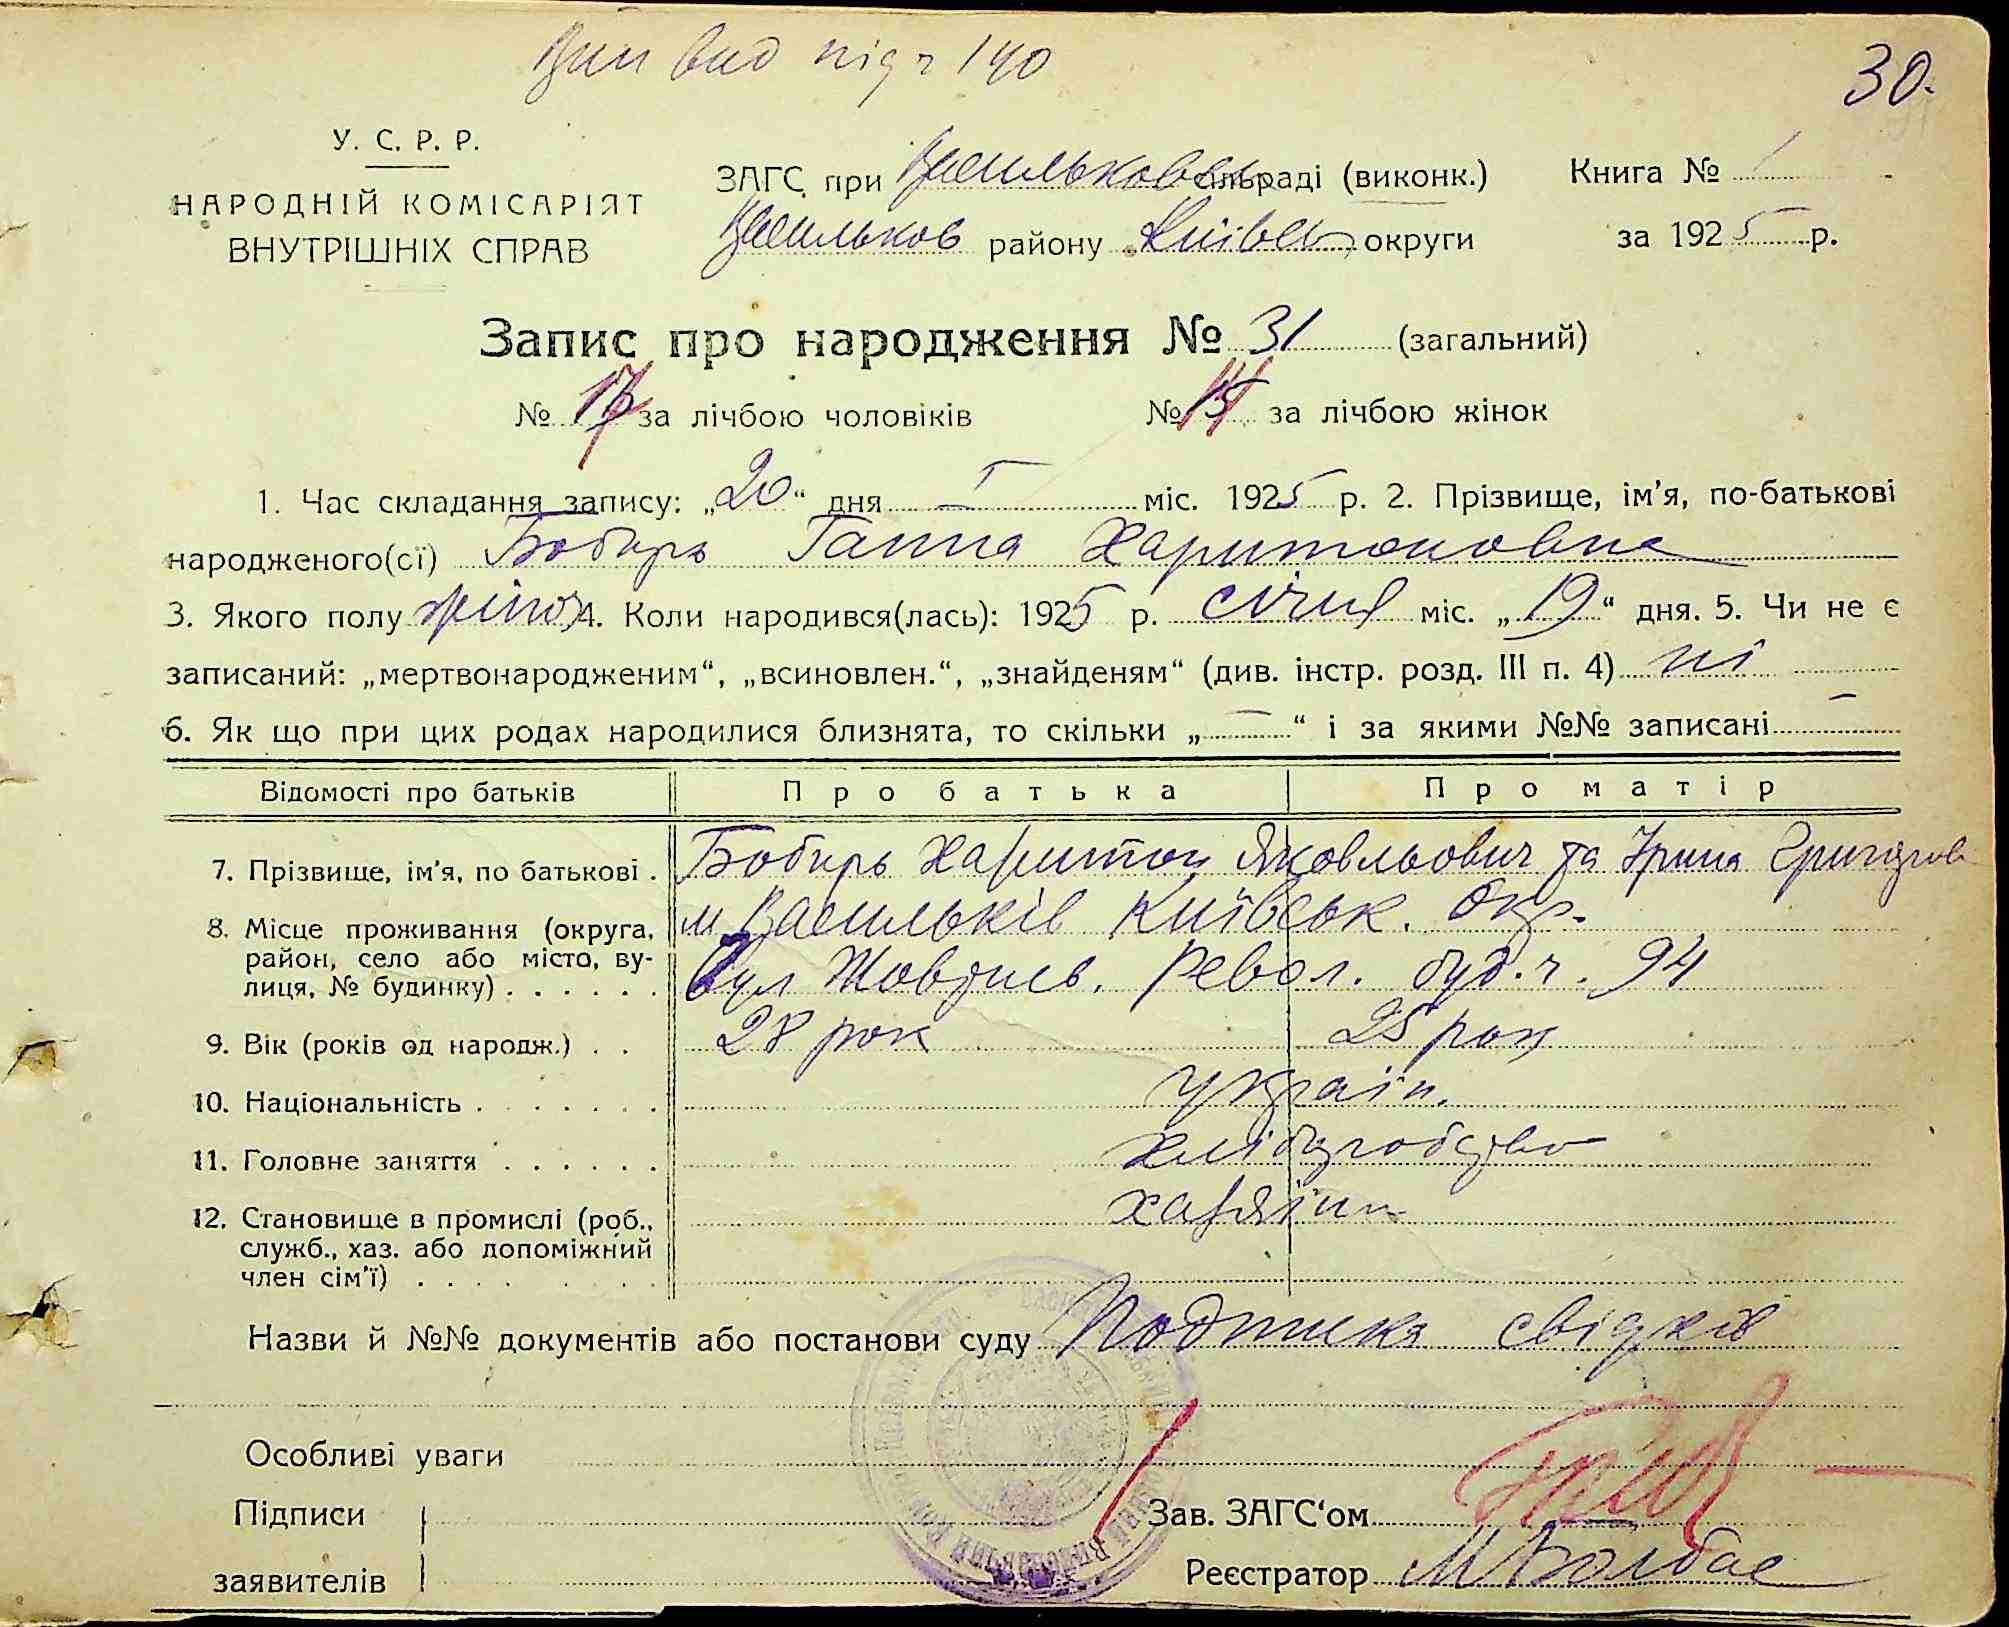 Вип вид під ч 140
30.
У. С. Р. Р.
НАРОДНІЙ КОМІСАРІЯТ
ВНУТРІШНІХ СПРАВ
ЗАГС при Васильковськ сільраді (виконк.) Книга № 1
Васильков району Київськ округи за 1925 р.
Запис про народження № 31 (загальний)
№ 17 за лічбою чоловіків № 14 за лічбою жінок
1. Час складання запису: „20“ дня I міс. 1925 р. 2. Прізвище, ім'я, по-батькові
народженого(сї) Бобирь Ганна Харитоновна
3. Якого полу жіноч 4. Коли народився(лась): 1925 р. січня міс. „19“ дня. 5. Чи не є
записаний: „мертвонародженим“, „всиновлен.“, „знайденям“ (див. інстр. розд. III п. 4) ні
6. Як що при цих родах народилися близнята, то скільки „ — “ і за якими №№ записані —
Відомості про батьків Про батька Про матір
7. Прізвище, ім'я, по батькові . Бобирь Харитон Яковльович та Ірина Григоров
8. Місце проживання (округа, м Васильків Київськ. Окр.
район, село або місто, ву-
лиця, № будинку) . . . . . . вул Жовтнев. Револ. буд. ч. 94
9. Вік (років од народж.) . . 28 рок 25 рок
10. Національність . . . . . . . україн.
11. Головне заняття . . . . . . хліборобство
12. Становище в промислі (роб., хазяїин
служб., хаз. або допоміжний
член сім'ї) . . . . . . . .
Назви й №№ документів або постанови суду Подписка свідків
Особливі уваги
Підписи
заявителів
Зав. ЗАГС‘ом
Реєстратор